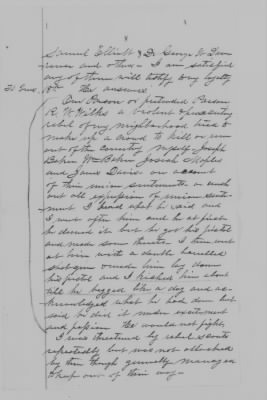 Samuel Elliott & Dr George W Daw
and others - I am satisfied
any of them will testify my loyalty
He answers
One Parson or pretended Parson
R. W. Wilks a violent & pestering
rebel of my neighborhood tried to
make up a crowd to kill or run
out of the country myself Joseph
Baker Wm Baker Josiah Maples
and James Davis on account
of their union sentiments or crush
out all expression of union senti-
ment I heard what he said and
I went after him and he at first
denied it but he got his pistol
and made some threats. I then went
at him with a double barrelled
shot gun made him lay down
his pistol and I kicked him about
till he begged like a dog and ac-
knowledged what he had done but
said he did it under excitement
and passion He would not fight.
I was threatened by rebel scouts
repeatedly but was not attacked
by them though generally managed
to keep out of their way